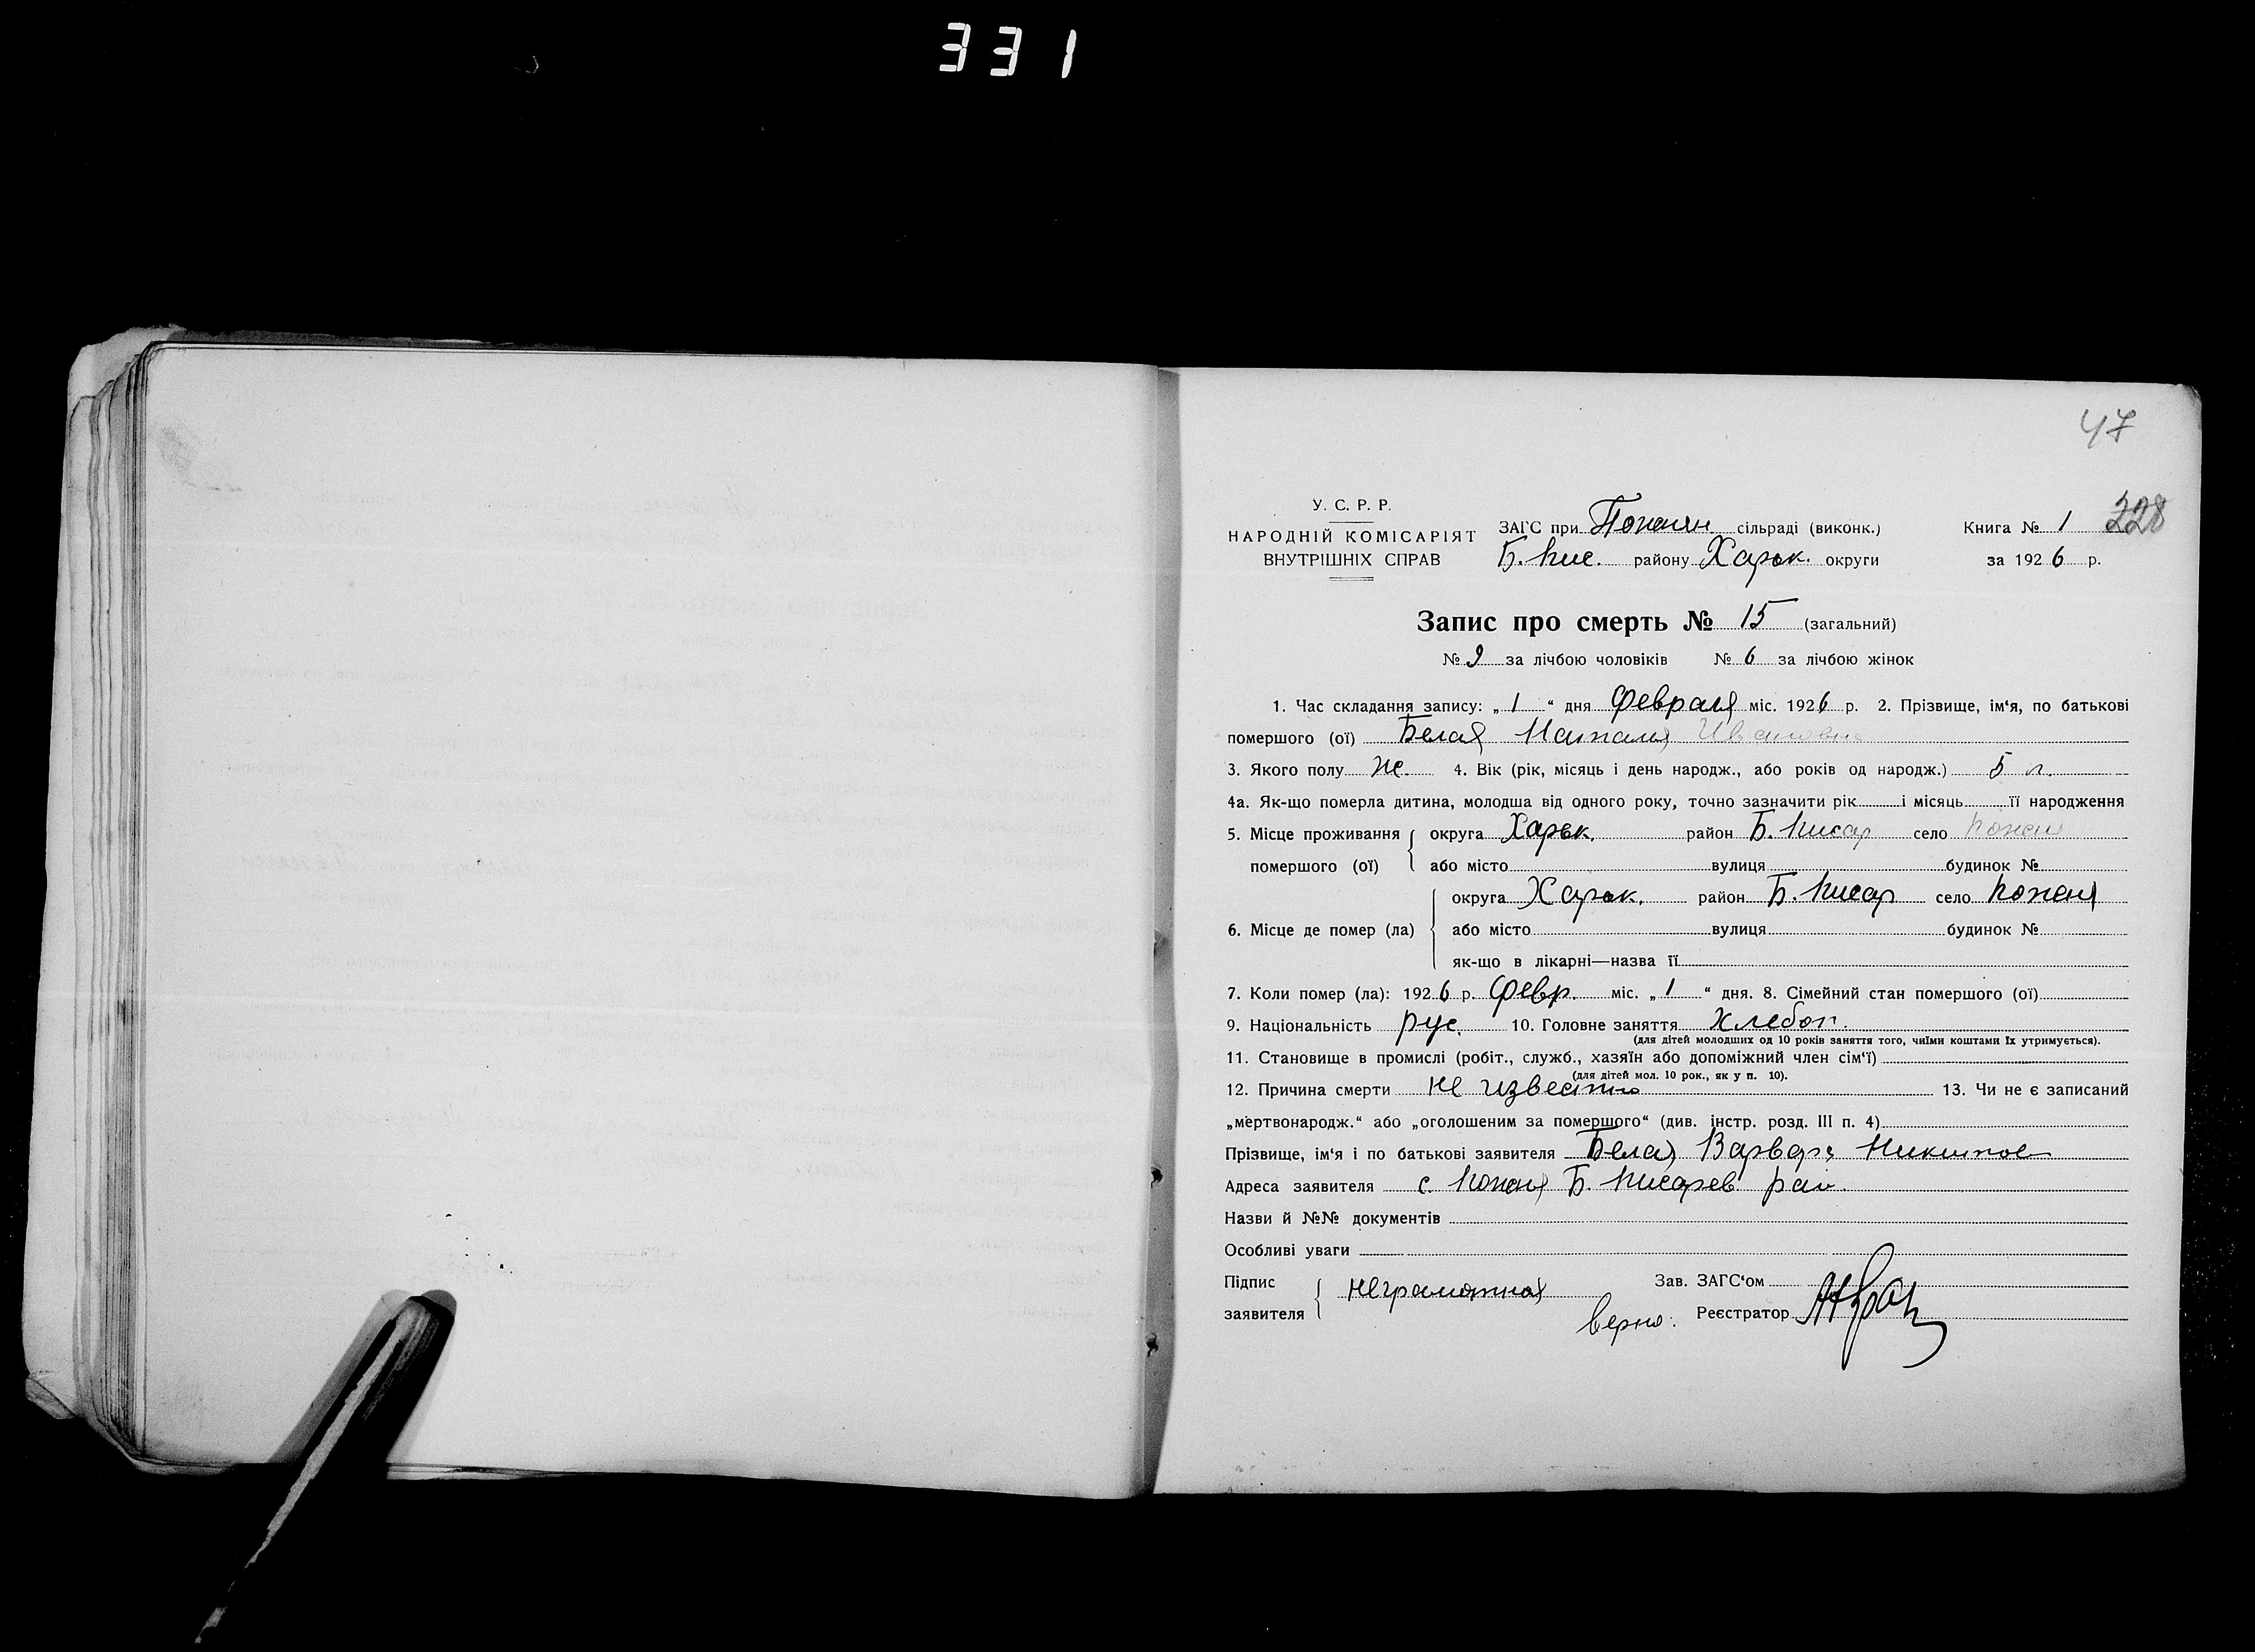 331
47
У. С. Р. Р.
НАРОДНІЙ КОМІСАРІЯТ
ВНУТРІШНІХ СПРАВ
ЗАГС при сільраді (виконк.)
Б. Пис. району Харьк. округи
Книга № 1 228
за 1926 р.
Запис про смерть № 15 (загальний)
№ 9 за лічбою чоловіків № 6 за лічбою жінок
1. Час складання запису: „ 1 “ дня Февраля міс. 1926 р. 2. Прізвище, ім‘я, по батькові
помершого (ої) Белая Наталия Ивановна
3. Якого полу ж. 4. Вік (рік, місяць і день народж., або років од народж.) 5 л.
4а. Як-що померла дитина, молодша від одного року, точно зазначити рік і місяць її народження
5. Місце проживання помершого (ої) округа Харьк. район Б. Писар село
або місто вулиця будинок №
6. Місце де помер (ла) округа Харьк. район Б. Писар село
або місто вулиця будинок №
як-що в лікарні—назва її
7. Коли помер (ла): 1926 р. Февр. міс. „ 1 “ дня. 8. Сімейний стан помершого (ої)
9. Національність рус. 10. Головне заняття Хлебоп.
(для дітей молодших од 10 років заняття того, чиїми коштами їх утримується).
11. Становище в промислі (робіт., служб., хазяїн або допоміжний член сім‘ї)
(для дітей мол. 10 рок., як у п. 10).
12. Причина смерти не известно 13. Чи не є записаний
„мертвонародж.“ або „оголошеним за помершого“ (див. інстр. розд. III п. 4)
Прізвище, ім‘я і по батькові заявителя Белая Варвара Никитов
Адреса заявителя с. Б. Писарев рай.
Назви й №№ документів
Особливі уваги
Підпис заявителя неграмотная
Зав. ЗАГС‘ом
верно: Реєстратор